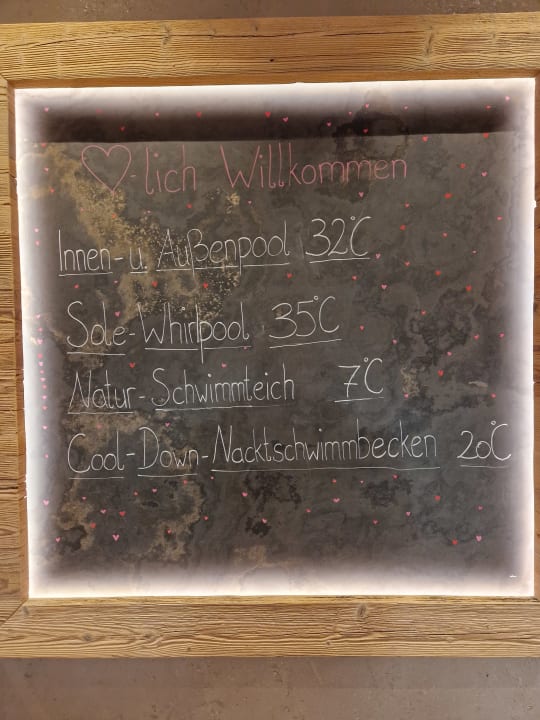 ♡-lich Willkommen
Innen- u. Außenpool 32°C
Sole-Whirlpool 35°C
Natur-Schwimmteich 7°C
Cool-Down-Nacktschwimmbecken 20°C